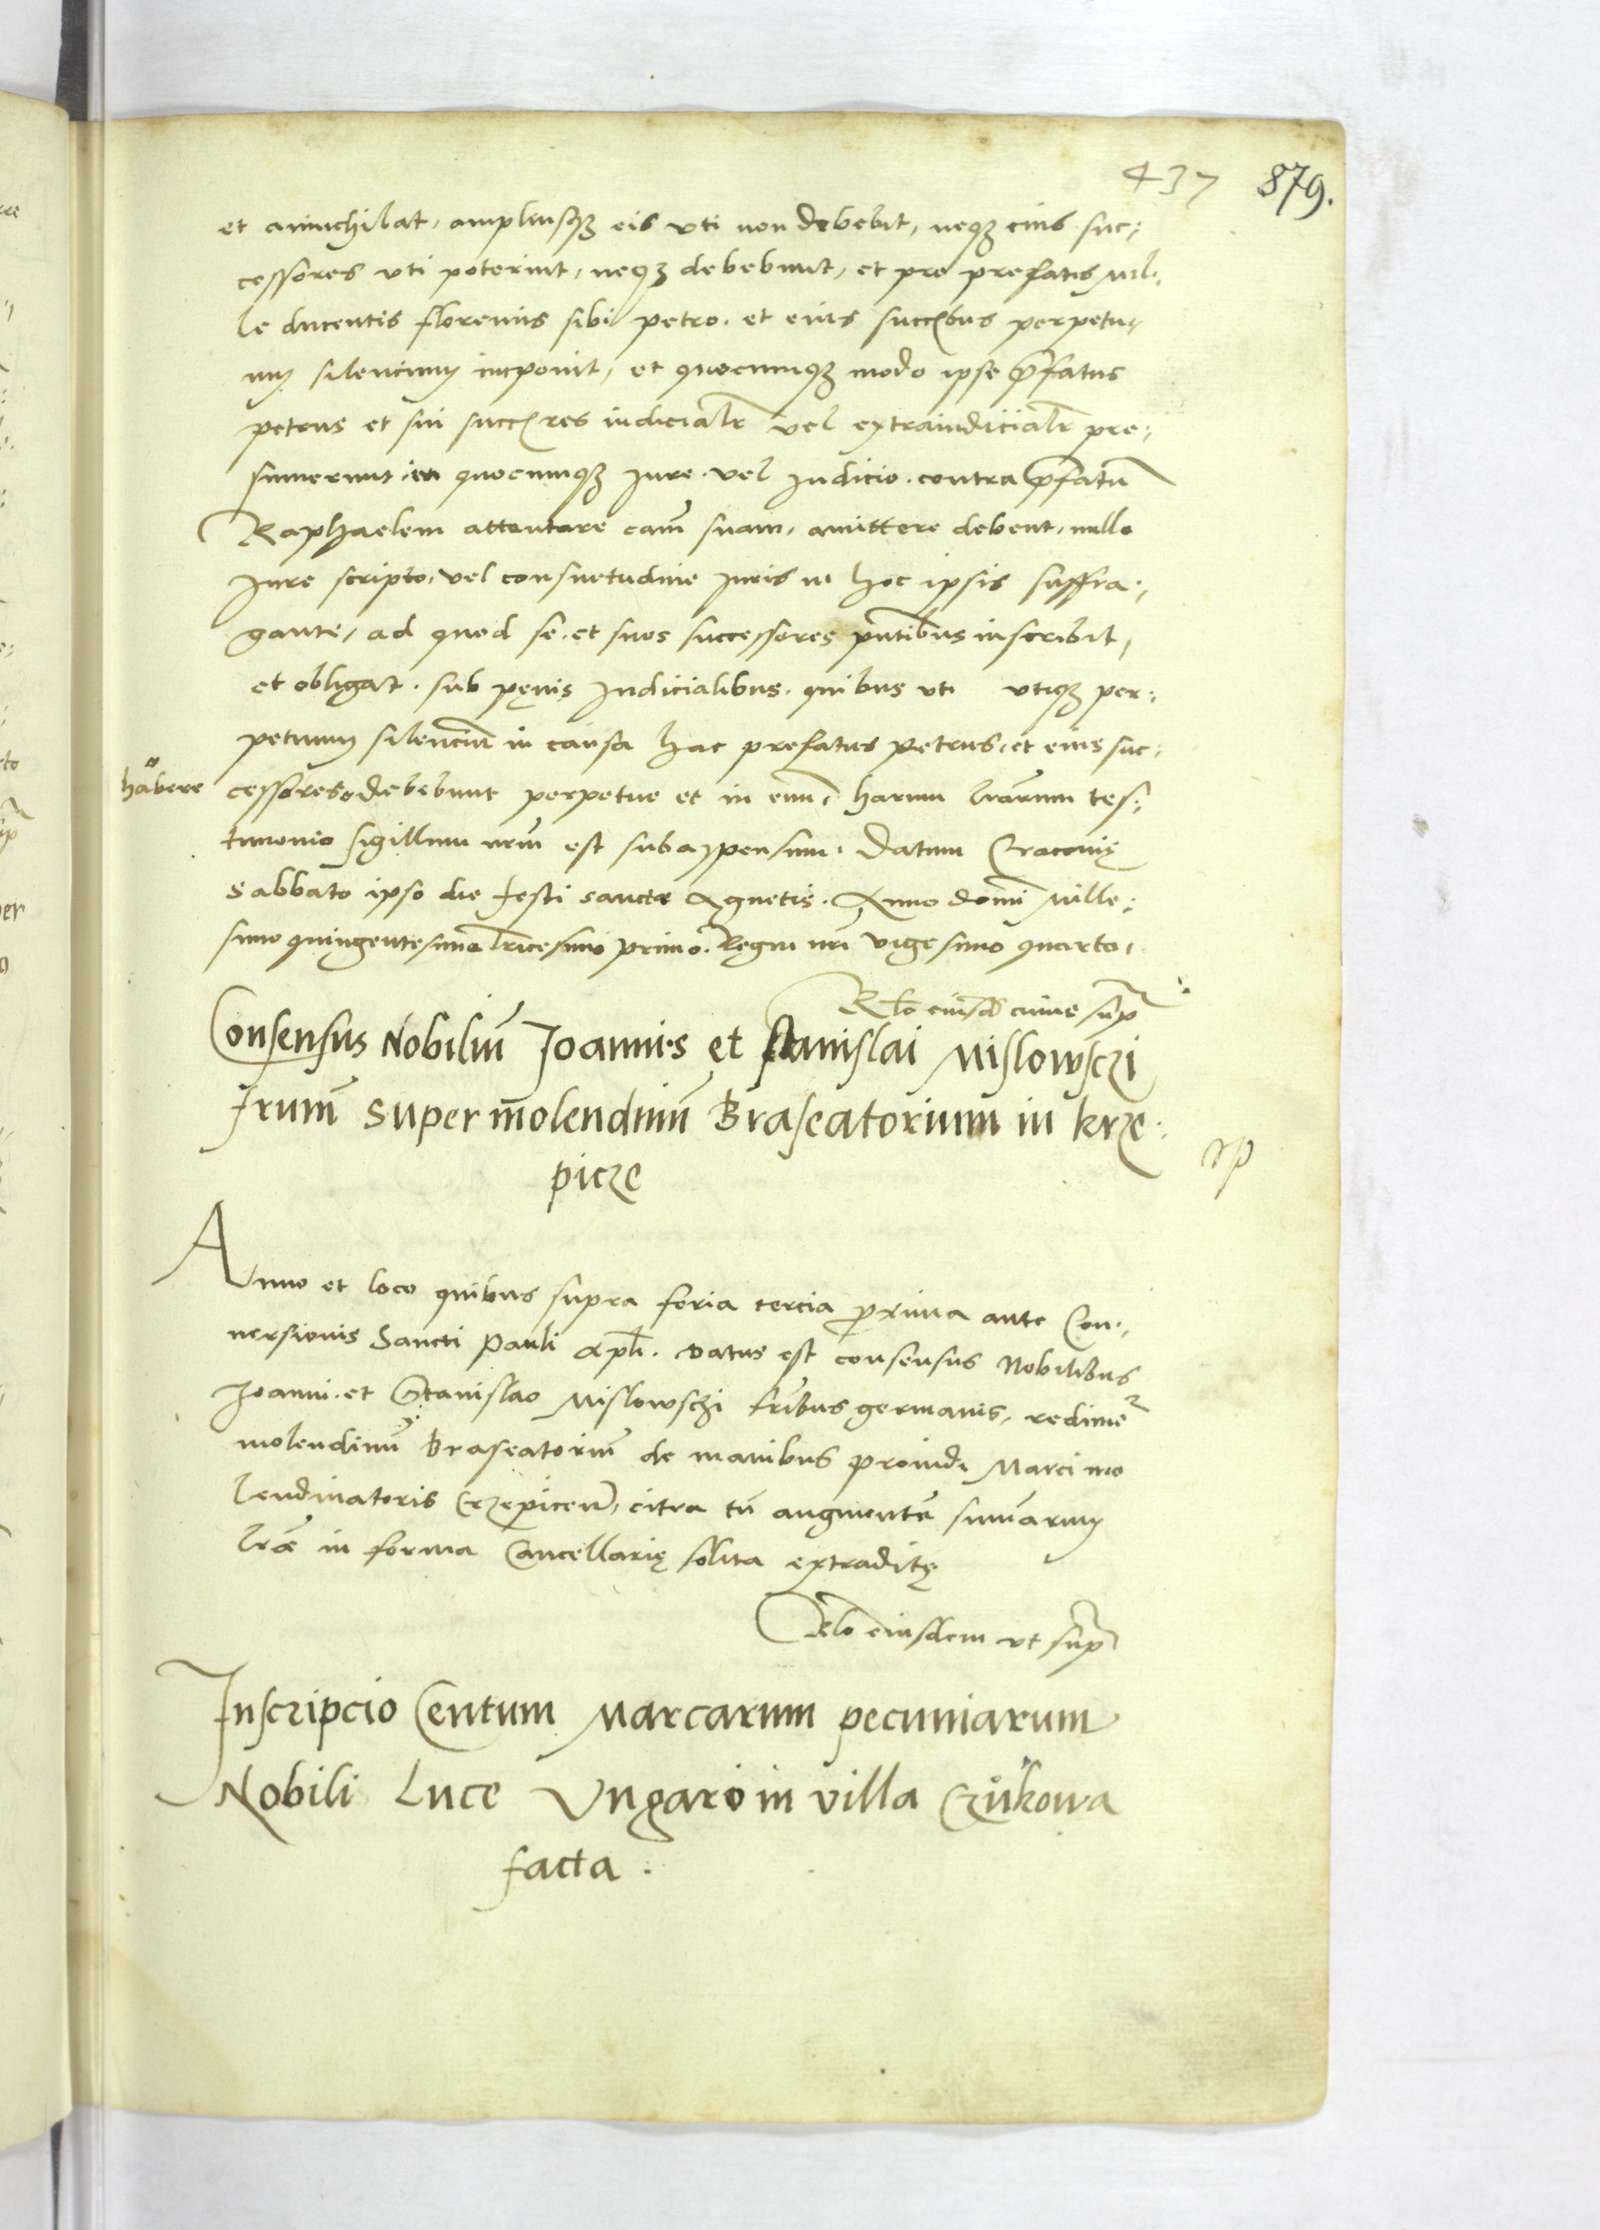 437 879.
et annichilat, ampliusq3 eis vti non debebit, neq3 eius suc:
cessores vti poterint, neq3 debebunt, et pro prefatis mil:
le ducentis florenis sibi petro. et eius succribus perpetu,
um silencium inponit, et quocumq3 modo ipse p̄fatus
petrus et sui succres iudicialr̄ vel extraiudicialr̄ pre:
sumerent in quocumq3 Jure. vel Judicio. contra p̄fatū
Raphaelem attentare caūm suam, amittere debent, nullo
Jure scripto, vel consuetudine Juris in hoc ipsis suffra:
gante, ad quod se. et suos successores pn̄tibus inscribit,
et obligat. sub pęnis Judicialibus. quibus vti vtiq3 per:
petuum silenciū in causa hac prefatus Petrus, et eius suc:
habere cessores debebunt perpetue et in euū. harum lrārum tes:
timonio sigillum nrūm est subappensum. Datum Cracovię
Sabbato ipso die festi sancte Agnetis. Anno domī Mille:
simo quingentesimo tricesimo primo. Regni nrī vigesimo quarto,
Relo eiusd cuius supr̄
Consensus Nobiliū Joannis et Stanislai Mislowsczi
frum̄ super molendinū Braseatorium in krze:
picze
Anno et loco quibus supra feria tercia proxima ante Con:
uersionis Sancti Pauli Apli. datus est consensus Nobilibus
Joanni. et Stanislao Mislowschi fribus germanis, redimer
molendinū braseatoriū de manibus prouidi Marci mo
lendinatoris Crzepicen, citra tn̄ augmentū summarum
lrae in forma Cancellarię solita extraditę
Relo eiusdem vt supr̄
Inscripcio Centum Marcarum pecuniarum
Nobili Luce Vngaro in villa Czukowa
facta.